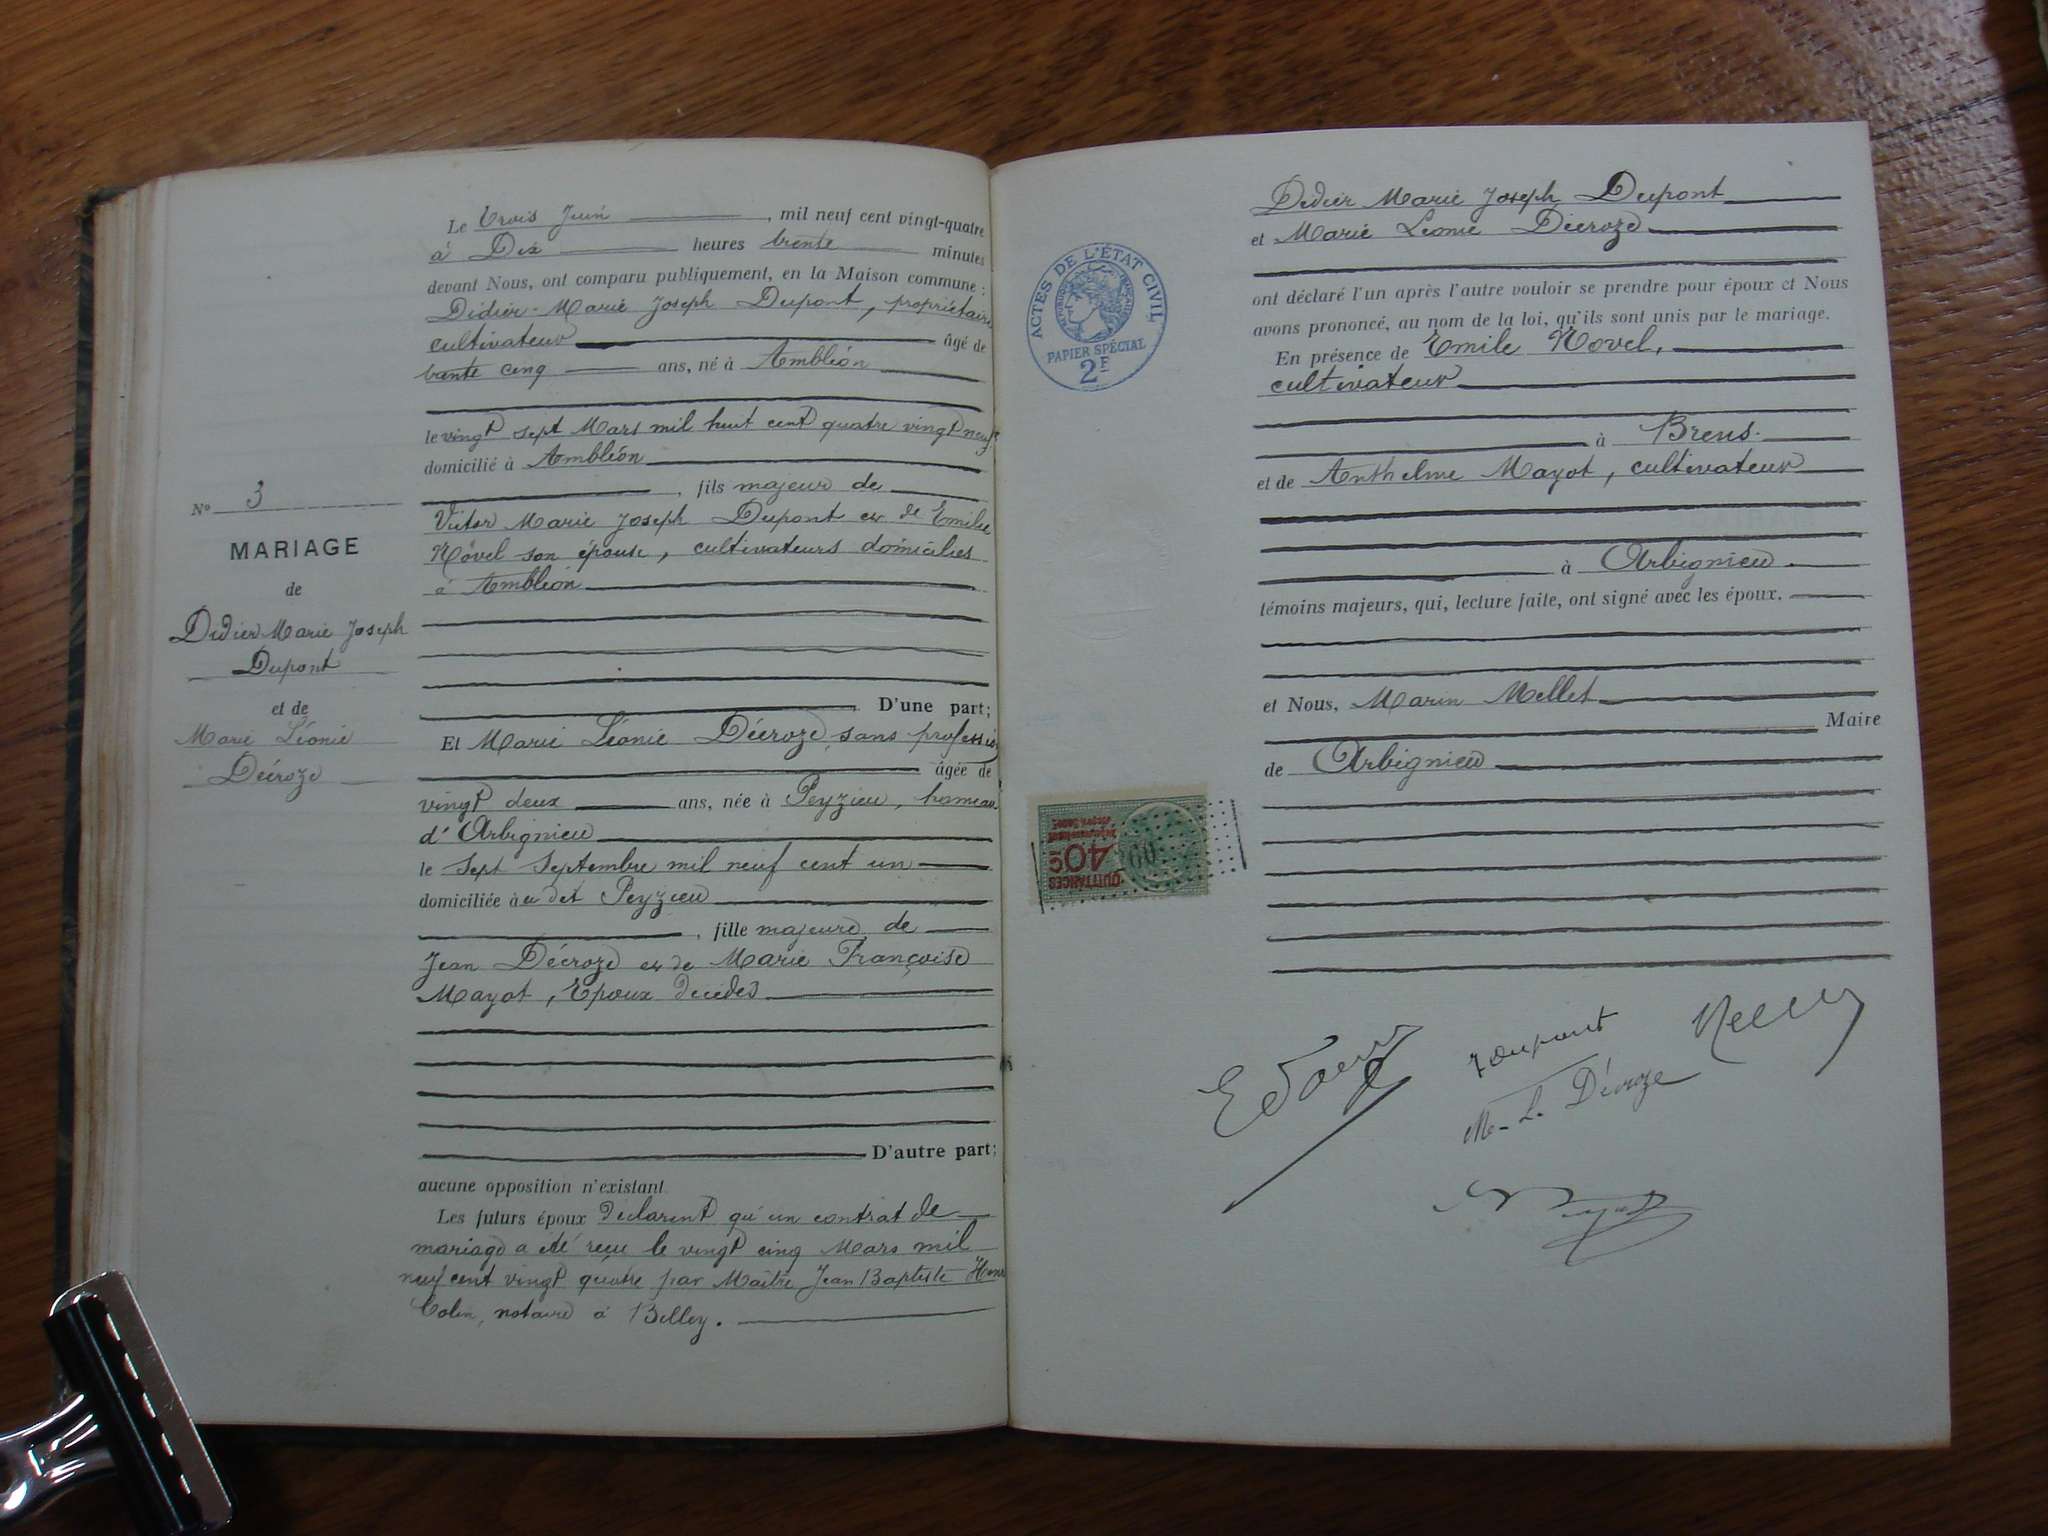 Le Trois Juin, mil neuf cent vingt-quatre
à Dix heures trente minutes
devant Nous, ont comparu publiquement, en la Maison commune :
Didier-Marie Joseph Dupont, propriétaire
cultivateur âgé de
trente cinq ans, né à Ambléon
le vingt sept Mars mil huit cent quatre vingt neuf
domicilié à Ambléon
, fils majeur de
Victor Marie Joseph Dupont et de Emilie
Novel son épouse, cultivateurs domiciliés
à Ambléon
D'une part;
Et Marie Léonie Décroze, sans profession
âgée de
vingt deux ans, née à Peyzieu, hameau
d'Arbignieu
le sept Septembre mil neuf cent un
domiciliée à au dit Peyzieu
, fille majeure de
Jean Décroze et de Marie Françoise
Mayot, Epoux décédés
D'autre part;
aucune opposition n'existant
Les futurs époux déclarent qu'un contrat de
mariage a été reçu le vingt cinq Mars mil
neuf cent vingt quatre par Maître Jean Baptiste
Colin, notaire à Belley.
N° 3
MARIAGE
de
Didier Marie Joseph
Dupont
et de
Marie Léonie
Décroze
Didier Marie Joseph Dupont
et Marie Léonie Décroze
ont déclaré l'un après l'autre vouloir se prendre pour époux et Nous
avons prononcé, au nom de la loi, qu'ils sont unis par le mariage.
En présence de Emile Novel,
cultivateur
à Brens.
et de Anthelme Mayot, cultivateur
à Arbignieu.
témoins majeurs, qui, lecture faite, ont signé avec les époux.
et Nous, Marin Mellet
Maire
de Arbignieu
ACTES DE L'ÉTAT CIVIL
RÉPUBLIQUE FRANÇAISE
PAPIER SPÉCIAL
2F
QUITTANCES
40c
Dupont
M-L. Décroze